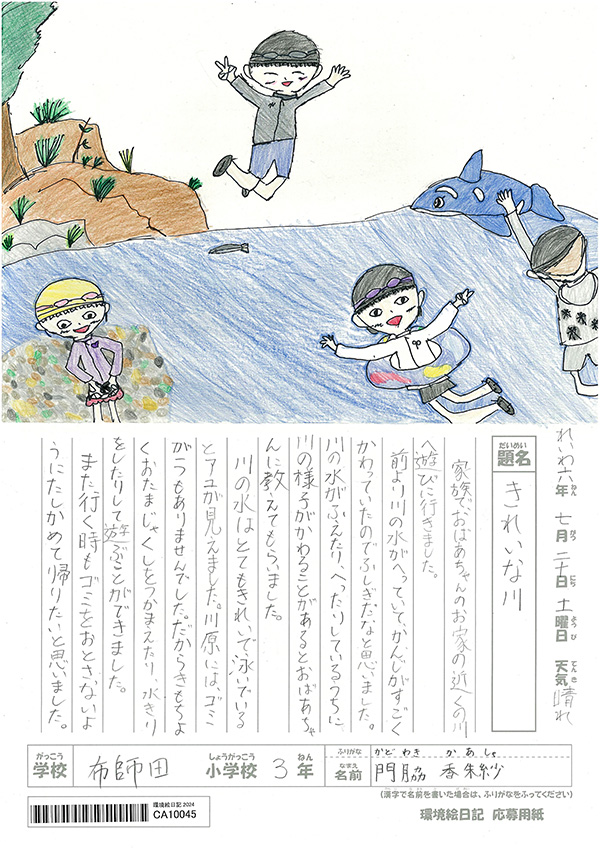 れいわ六年 七月 二十日 土曜日 天気 晴れ
ねん がつ にち ようび てんき
だいめい
題名
きれいな川
家族で、おばあちゃんのお家の近くの川
へ遊びに行きました。
前より川の水がへっていて、かんじがすごく
かわっていたのでふしぎだなと思いました。
川の水がふえたり、へったりしているうちに
川の様子がかわることがあるとおばあちゃ
んに教えてもらいました。
川の水はとてもきれいで泳いでいる
とアユが見えました。川原には、ゴミ
が一つもありませんでした。だからきもちよ
くおたまじゃくしをつかまえたり、水きり
をしたりして遊ぶことができました。
また行く時もゴミをおとさないよ
うにたしかめて帰りたいと思いました。
がっこう しょうがっこう ねん
学校 布師田 小学校 3年
ふりがな かどわき かあしゃ
なまえ
名前 門脇 香朱紗
(漢字で名前を書いた場合は、ふりがなをふってください)
環境絵日記 2024
CA10045
環境絵日記 応募用紙